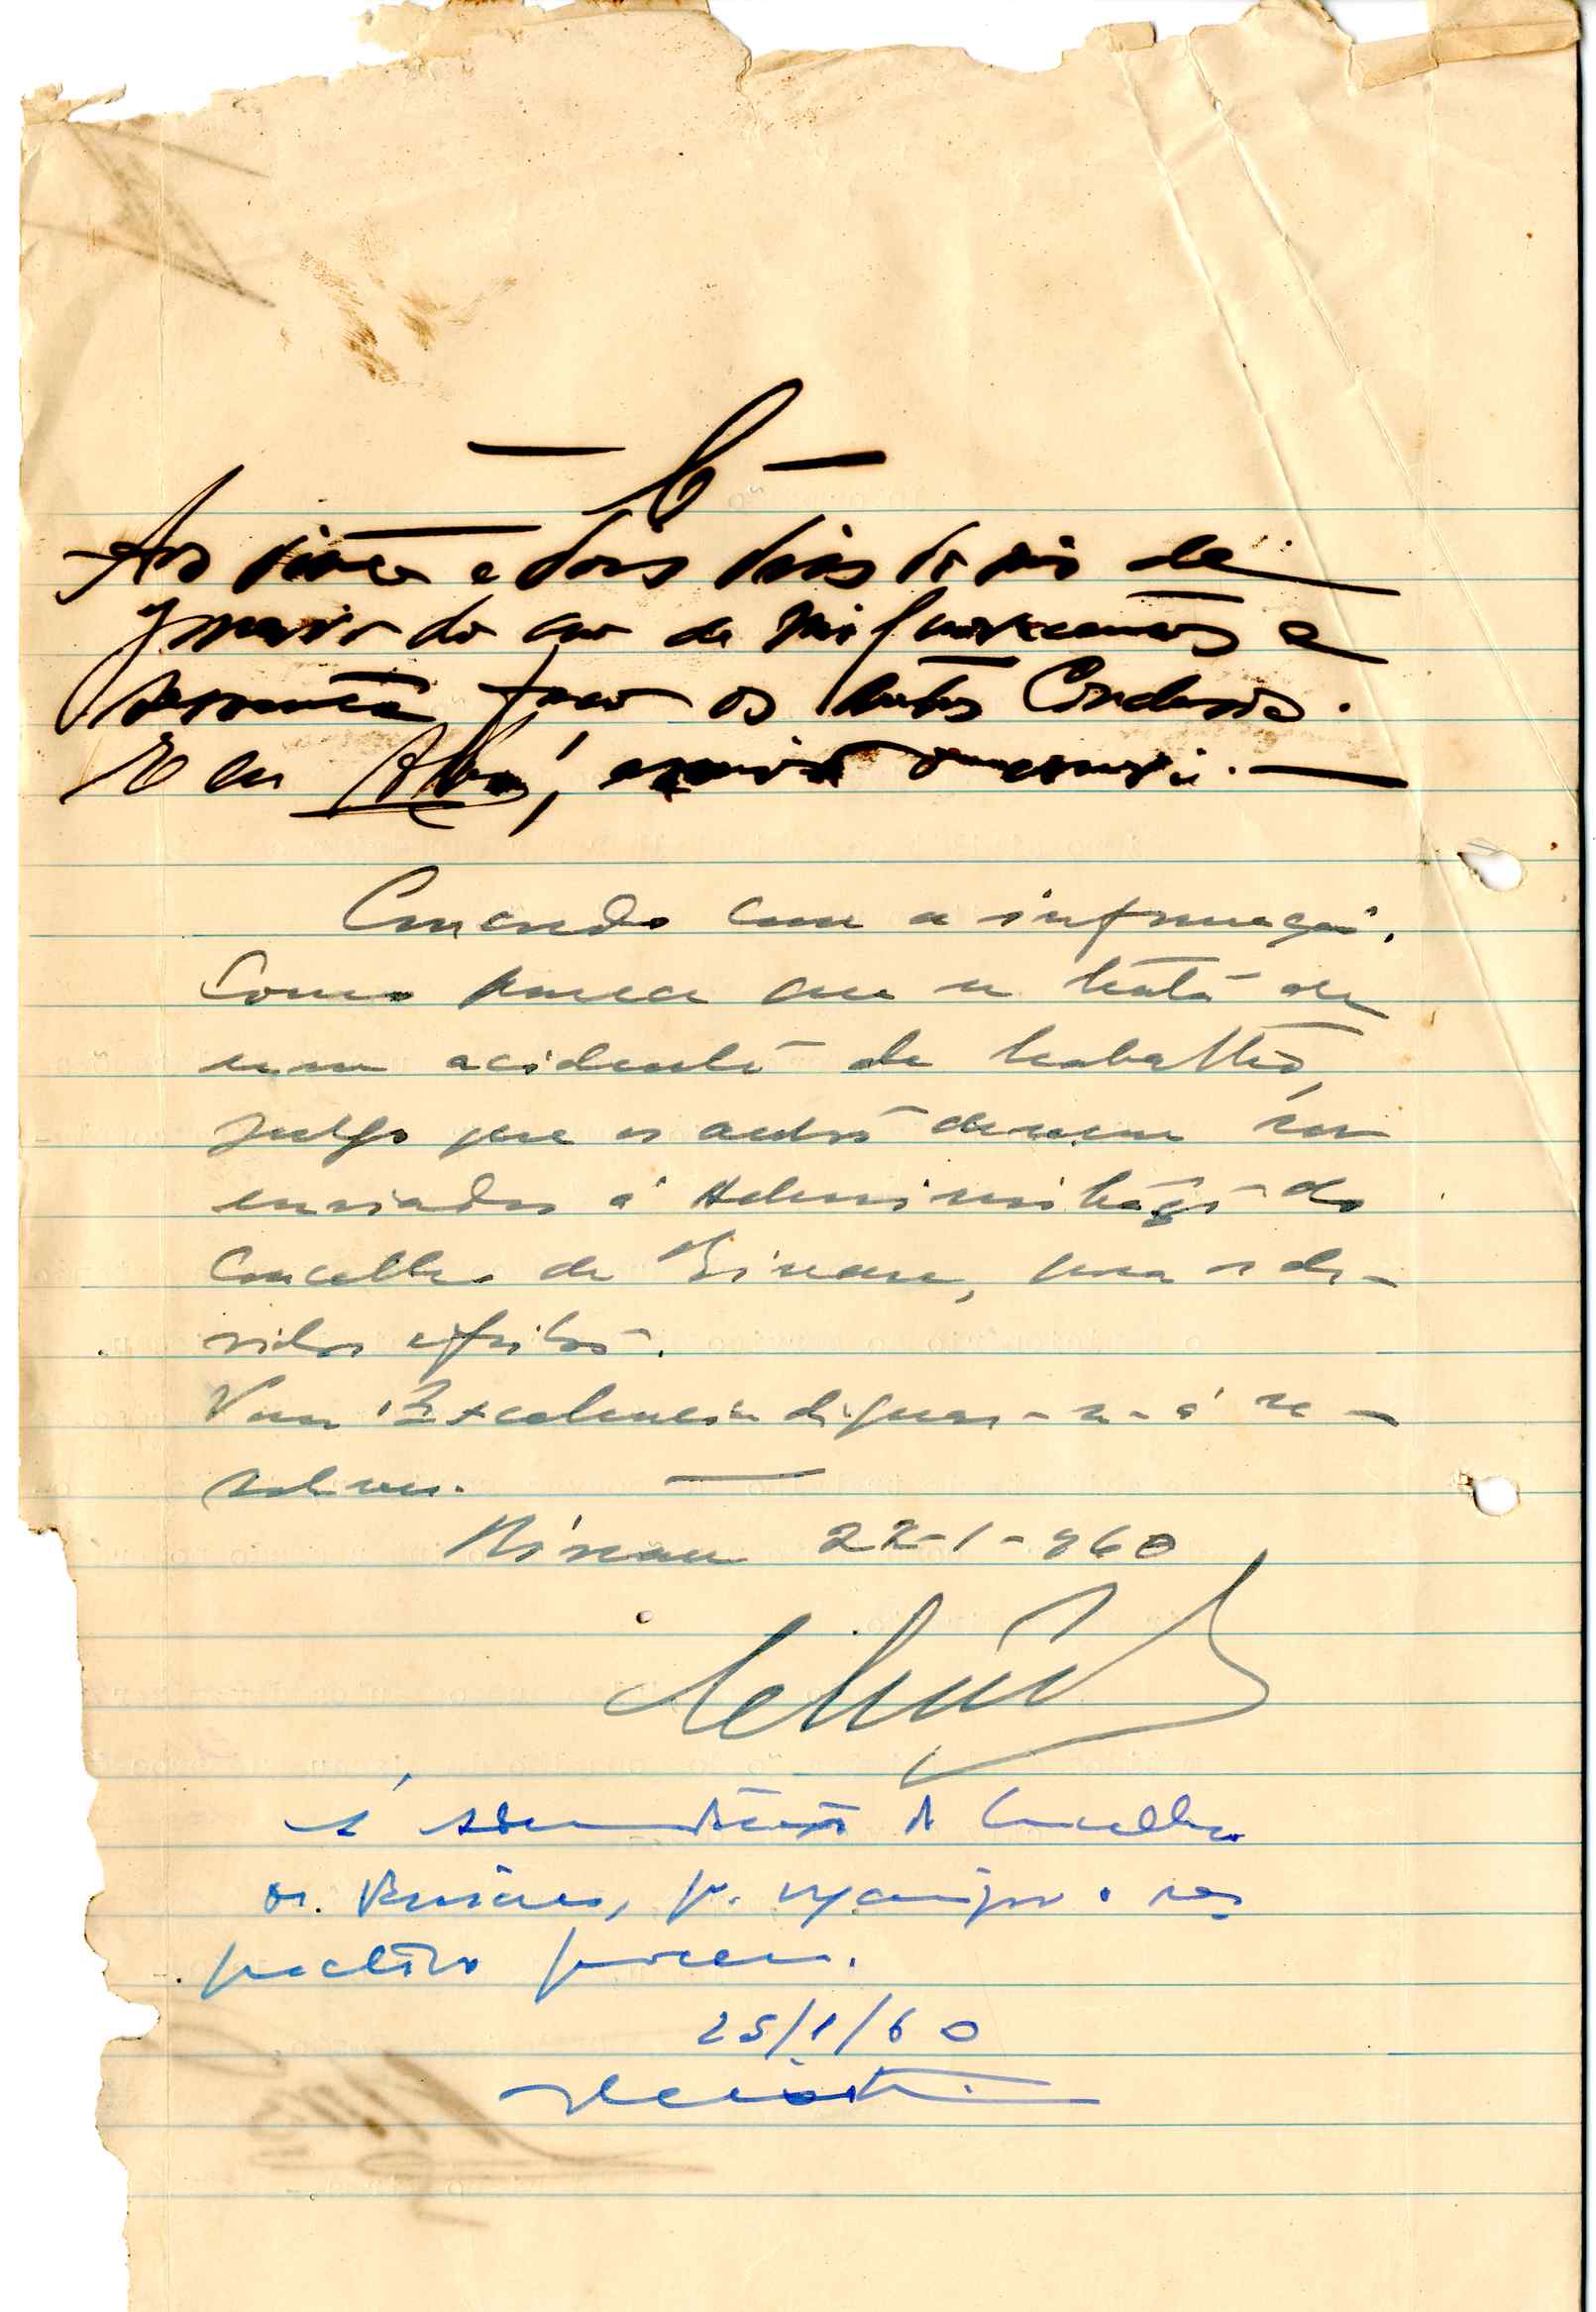 Aos vinte e dois dias do mês de
Janeiro do ano de mil novecentos e
sessenta faço os autos Conclusos.
E eu escrivão o
Concordo com a informação.
Como parece que se trata de
um acidente de trabalho,
julgo que os autos devem ser
enviados á Administração do
Concelho de Bissau, para os de-
vidos efeitos.
Vossa Excelencia dignar-se-á re-
solver.
Bissau 22-1-960
Á Administração do Concelho
de Bissau, p.
pectivo processo.
25/1/60